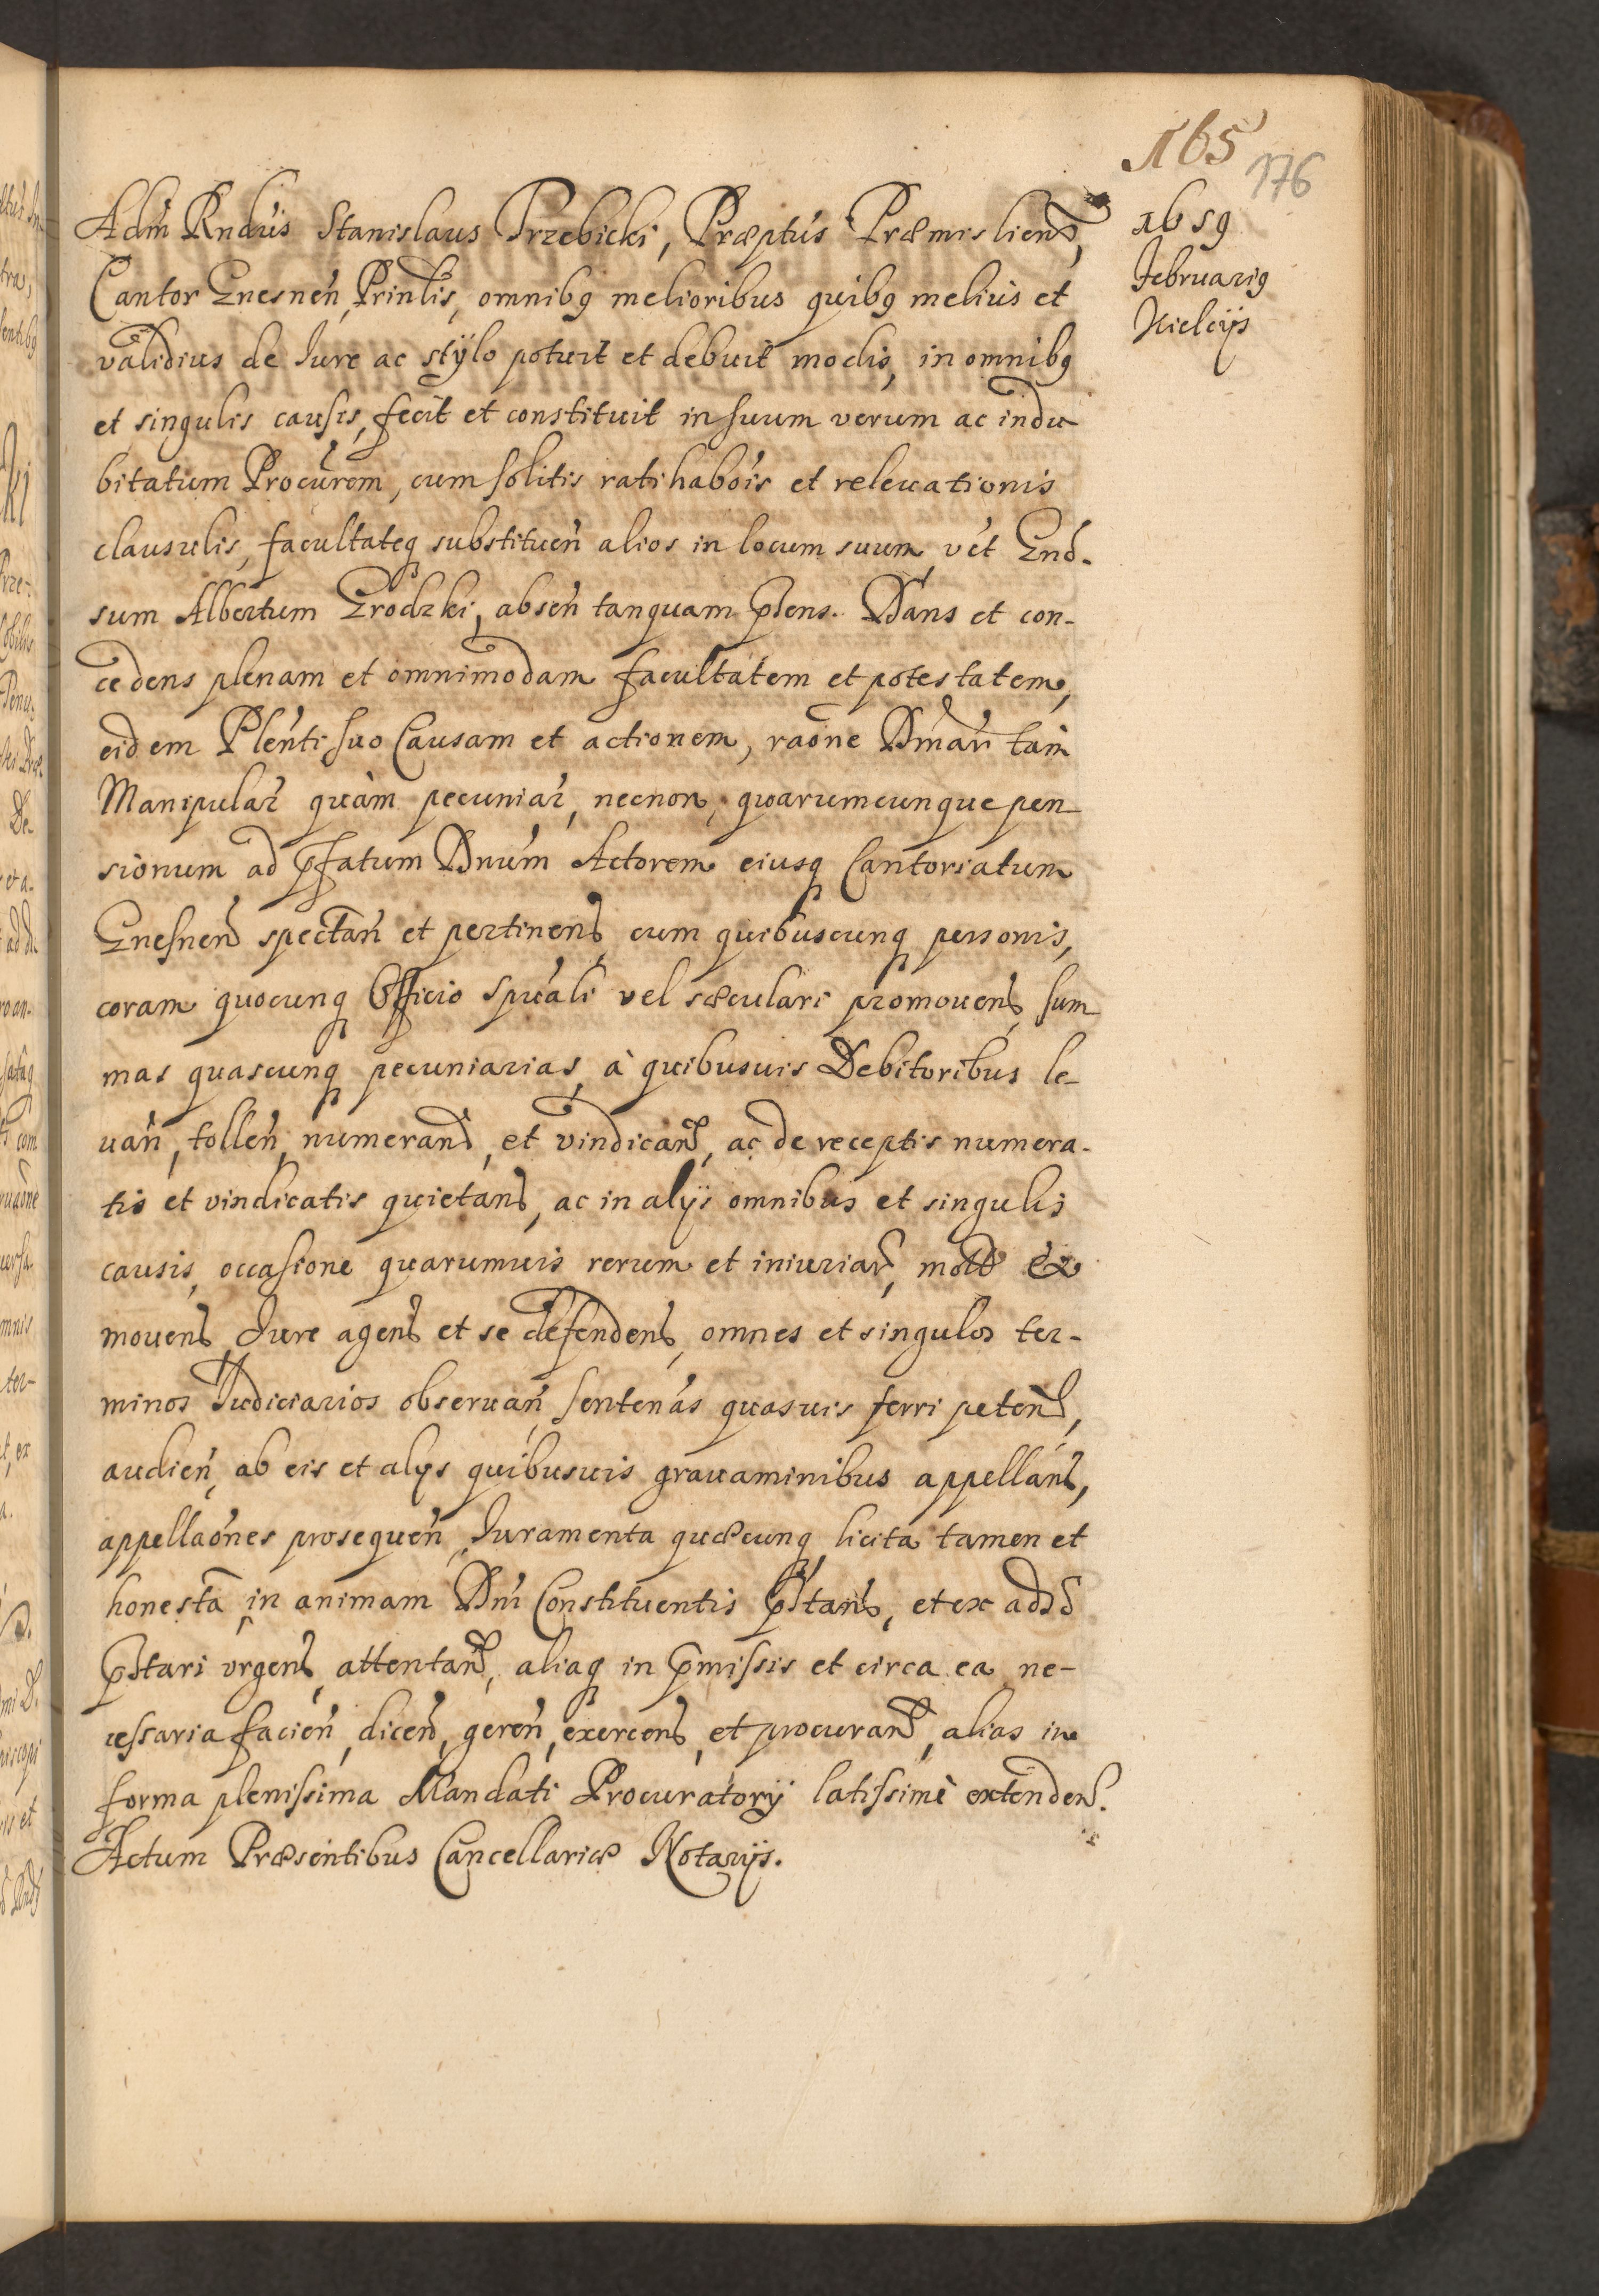 165
176
1659
Februarius
Kielcijs
Adm̃ Rndús Stanislaus Przebicki, Præptús Præmisliens,
Cantor Gnesneñ, Prinlis, omnibꝯ melioribus quibꝯ meliús et
validius de Iure ac stÿlo potuit et debuit modis, in omnibꝯ
et singulis causis, fecit et constituit in suum verum ac indu
bitatum Procũrem, cum solitis ratihabóis et releuationis
clausulis, facultateq substitueñ alios in locum suum, vét Gnó.
sum Albertum Grodzki, abseñ tanquam p̃dens. Dans et con-
cedens plenam et omnimodam facultatem et potestatem,
eidem Plenti suo Causam et actionem, raõne Dmãr tam
Manipular quàm pecuniar, necnon, quarumcunque pen
sionum ad p̃fatum Dnúm Actorem eiusq Cantoriatum
Gnesnens spectañ et pertinens cum quibuscunq personis,
coram quocunq Officio spuáli vel sæculari promouens, sum
mas quascunq pecuniarias, à quibusuis Debitoribus le-
uañ, tolleñ, numerand, et vindicand, ac de receptis numera-
tis et vindicatis quietand, ac in alijs omnibus et singulis
causis, occasione quarumuis rerum et iniuriar, mott Ex
mouens, Iure agens et se defendens, omnes et singulos ter-
minos Iudiciarios obseruañ, sentenás quasuis ferri petend,
audieñ, ab eis et alijs quibusuis grauaminibus appellans,
appellaónes prosequeñ, Iuramenta quæcunq, licita tamen et
honesta in animam Dni Constituentis p̃stans, et ex adód
p̃stari vrgens, attentand, aliaq in p̃missis et circa ea ne-
cessaria facieñ, dicend, gereñ, exercens, et procurand, alias in
forma plenissima Mandati Procuratorij latissimè extendend.
Actum Præsentibus Cancellariæ Notarijs.